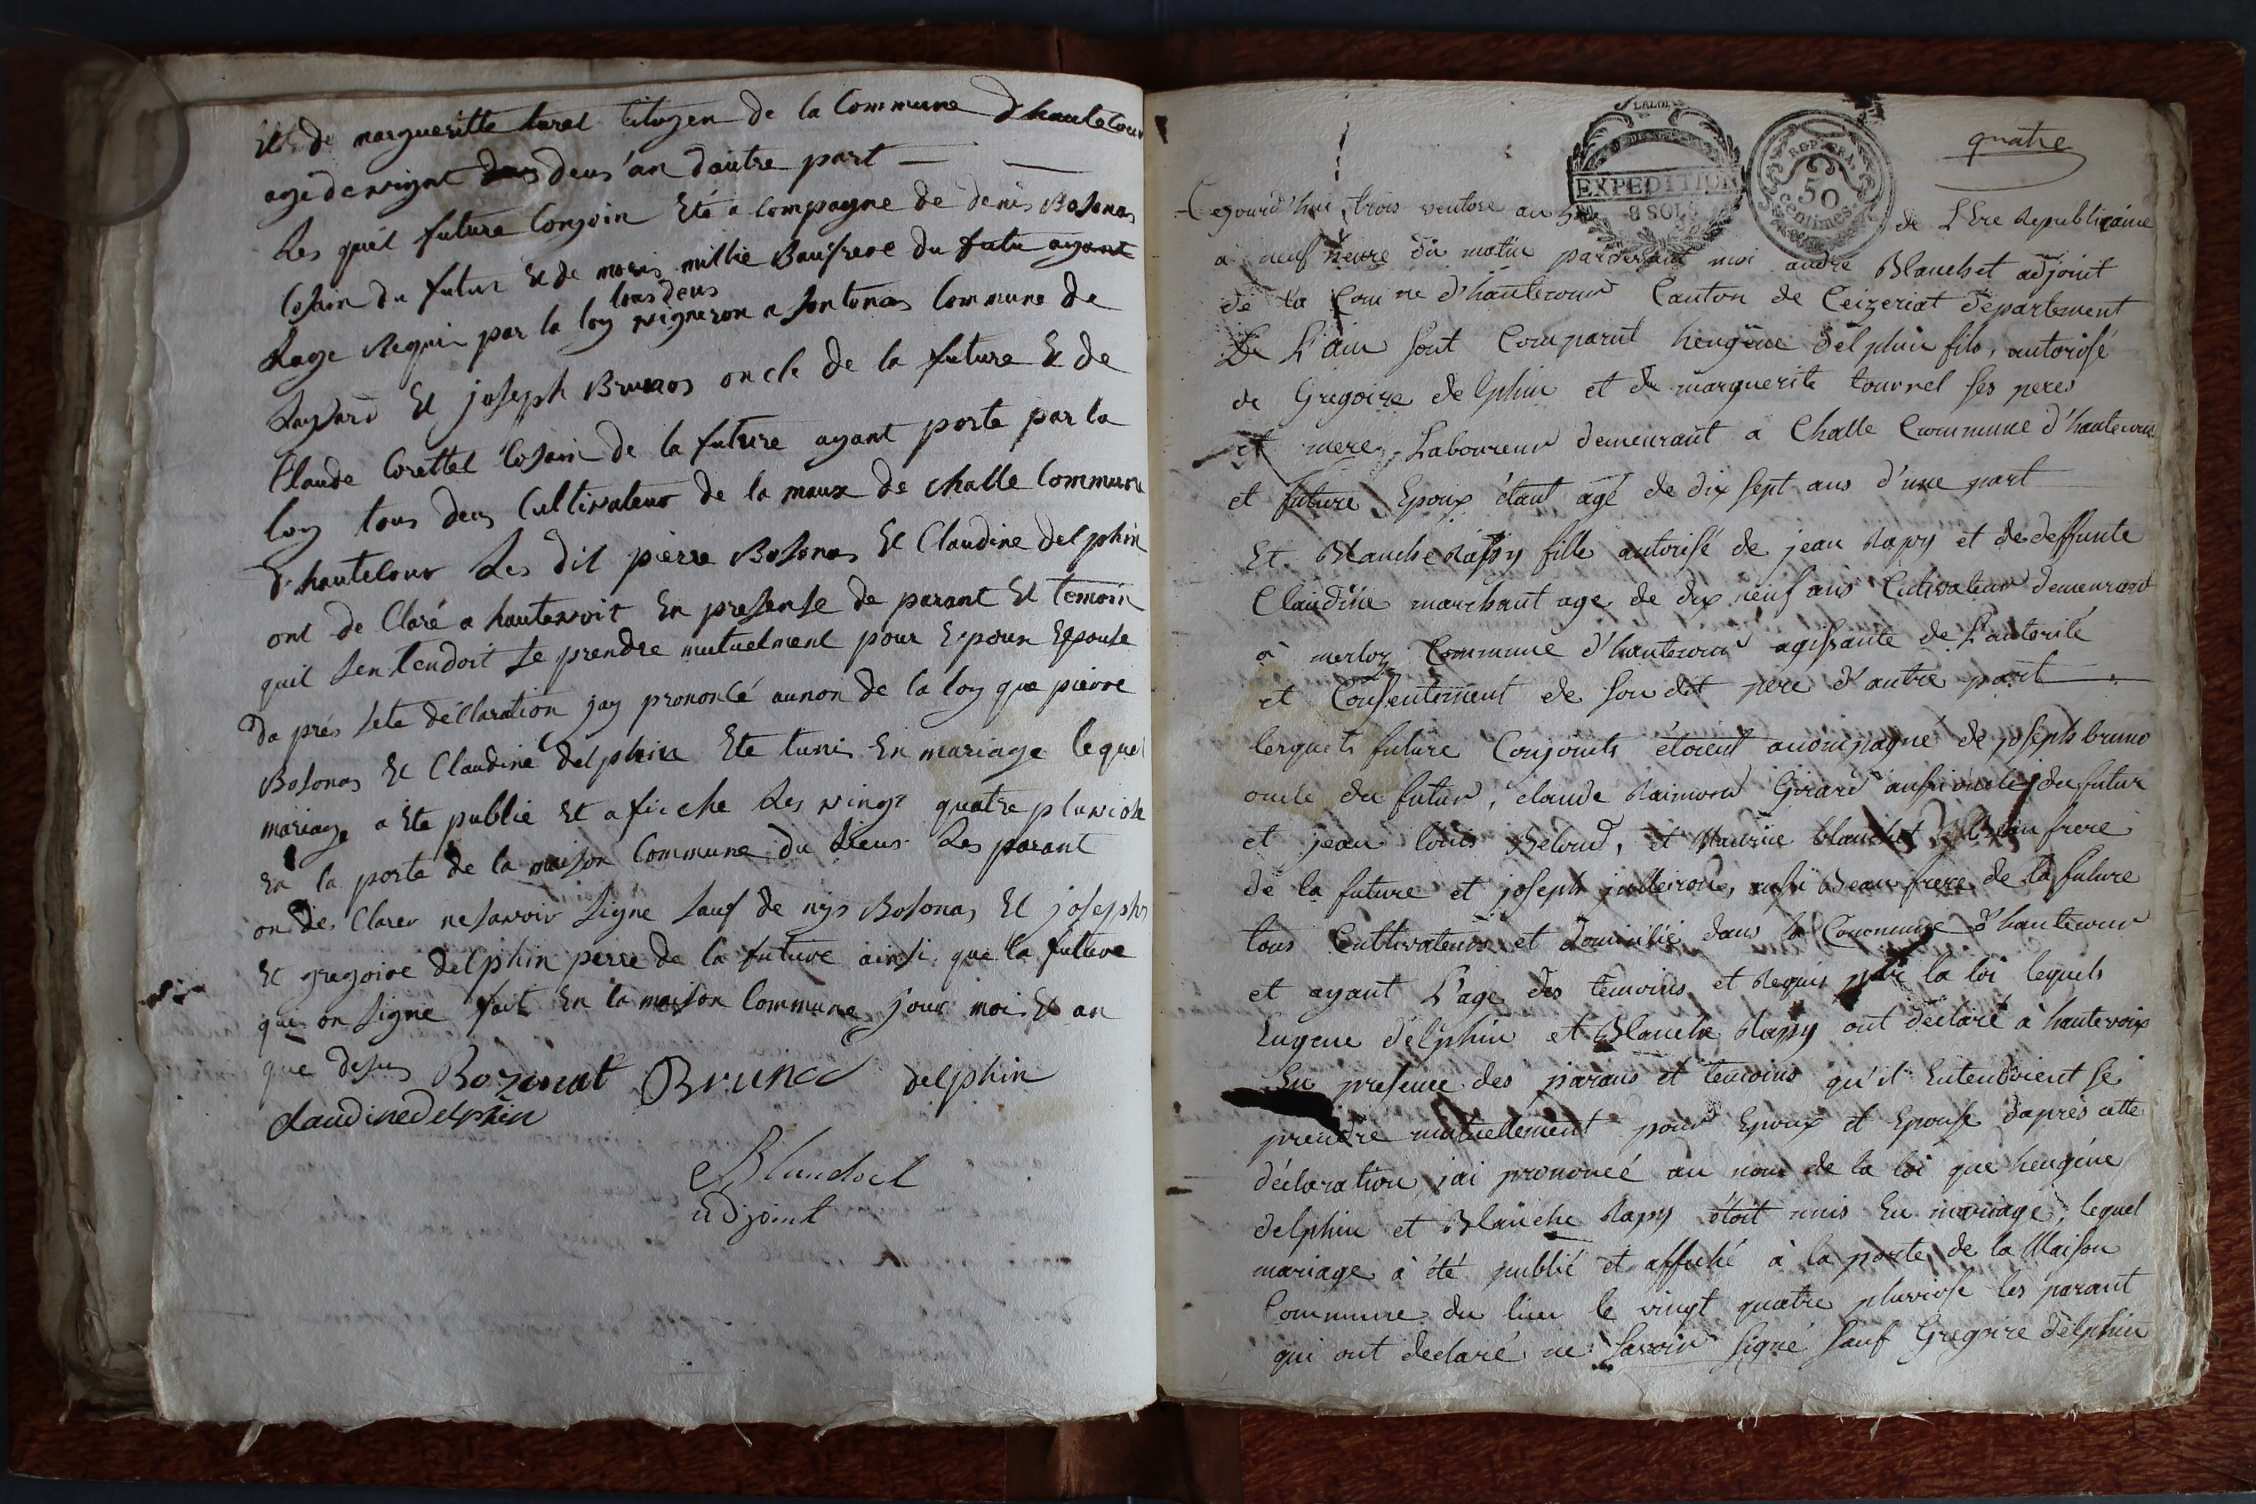 Et de margueritte turel Citoyen de la Commune d'hautecour
age de vignt deus an dautre part
Les quel future Conjoin Eté a Compagne de denis Bosonas
Cosain du futur Et de moris millie Baufrere du futu ayant
Lage Requi par la loy tous deus vigneron a Sontonas Commune de
Et joseph Brunos oncle de la future Et de
Claude Corettel Cosain de la future ayant porte par la
loy tous deus Cultivateur de la maux de challe Commune
d'hautecour Les dit pierre Bosonas Et Claudine delphin
ont de Claré a hautevoit En presense de parant Et temoin
quil sentendoit se prendre mutuelment pour Epoux Epouse
da prés sete déClaration jay prononcé aunon de la loy que pierre
Bosonas Et Claudine delphin Ete tunis En mariage lequel
mariage a Ete publie Et afiche Les vingt quatre pluviose
En la porte de la maison Commune du Lieus Les parant
on de Clarer ne savoir signe sauf de nys Bosonas Et joseph
Et gregoire delphin perre de la future ainsi que la future
qui on signe fait En la maison Commune jour moi Et an
que desus Bozonat Brunod delphin
claudine delphin
Blanchet
adjoint
quatre
LA LOI
EXPEDITION
8 SOLS
REP. FRA.
50
centimes
Cejourd'hui trois ventose an de L'Ere Republicaine
a neuf heure du matin pardevant moi andré Blanchet adjoint
de la Commune d'hautecour Canton de Ceizeriat departement
De L'ain sont Comparut heugéne delphin fils, autorisé
de Gregoire delphin et de marguerite tournel ses peres
et mere, Laboureur demeurant a Challe Commune d'hautecour
et future Epoux étant agé de dix sept ans d'une part
Et Blanche Rapy fille autorisé de jean Rapy et de deffunte
Claudine marchant age de dix neuf ans Cultivateur demeurant
à merloz Commune d'hautecour agissante de L'autorité
et Consentement de son dit pere d'autre part
lesquels future Conjoints étoient accompagné de joseph bruno
oncle du futur, claude Raimond Girard aussi oncle du futur
et jean louis Beloud, et Maurice blanchet Beau frere
de la future et joseph juilleiron, aussi Beau frere de la future
tous Cultivateurs et domicilié dans la Commune d'hautecour
et ayant L'age des temoins et Requis par la loi, lequels
Eugene delphin et Blanche Rapy ont déclaré à hautevoix
En presence des parans et temoins qu'il Entendoient se
prendre mutuellement pour Epoux et Epouse d'après cette
déclaration, jai prononcé au nom de la loi que heugéne
delphin et Blanche Rapy étoit unis En mariage, lequel
mariage à été publié et affiché à la porte de la Maison
Commune du lieu le vingt quatre pluviose les parant
qui ont declaré ne Savoir signé sauf Gregoire delphin